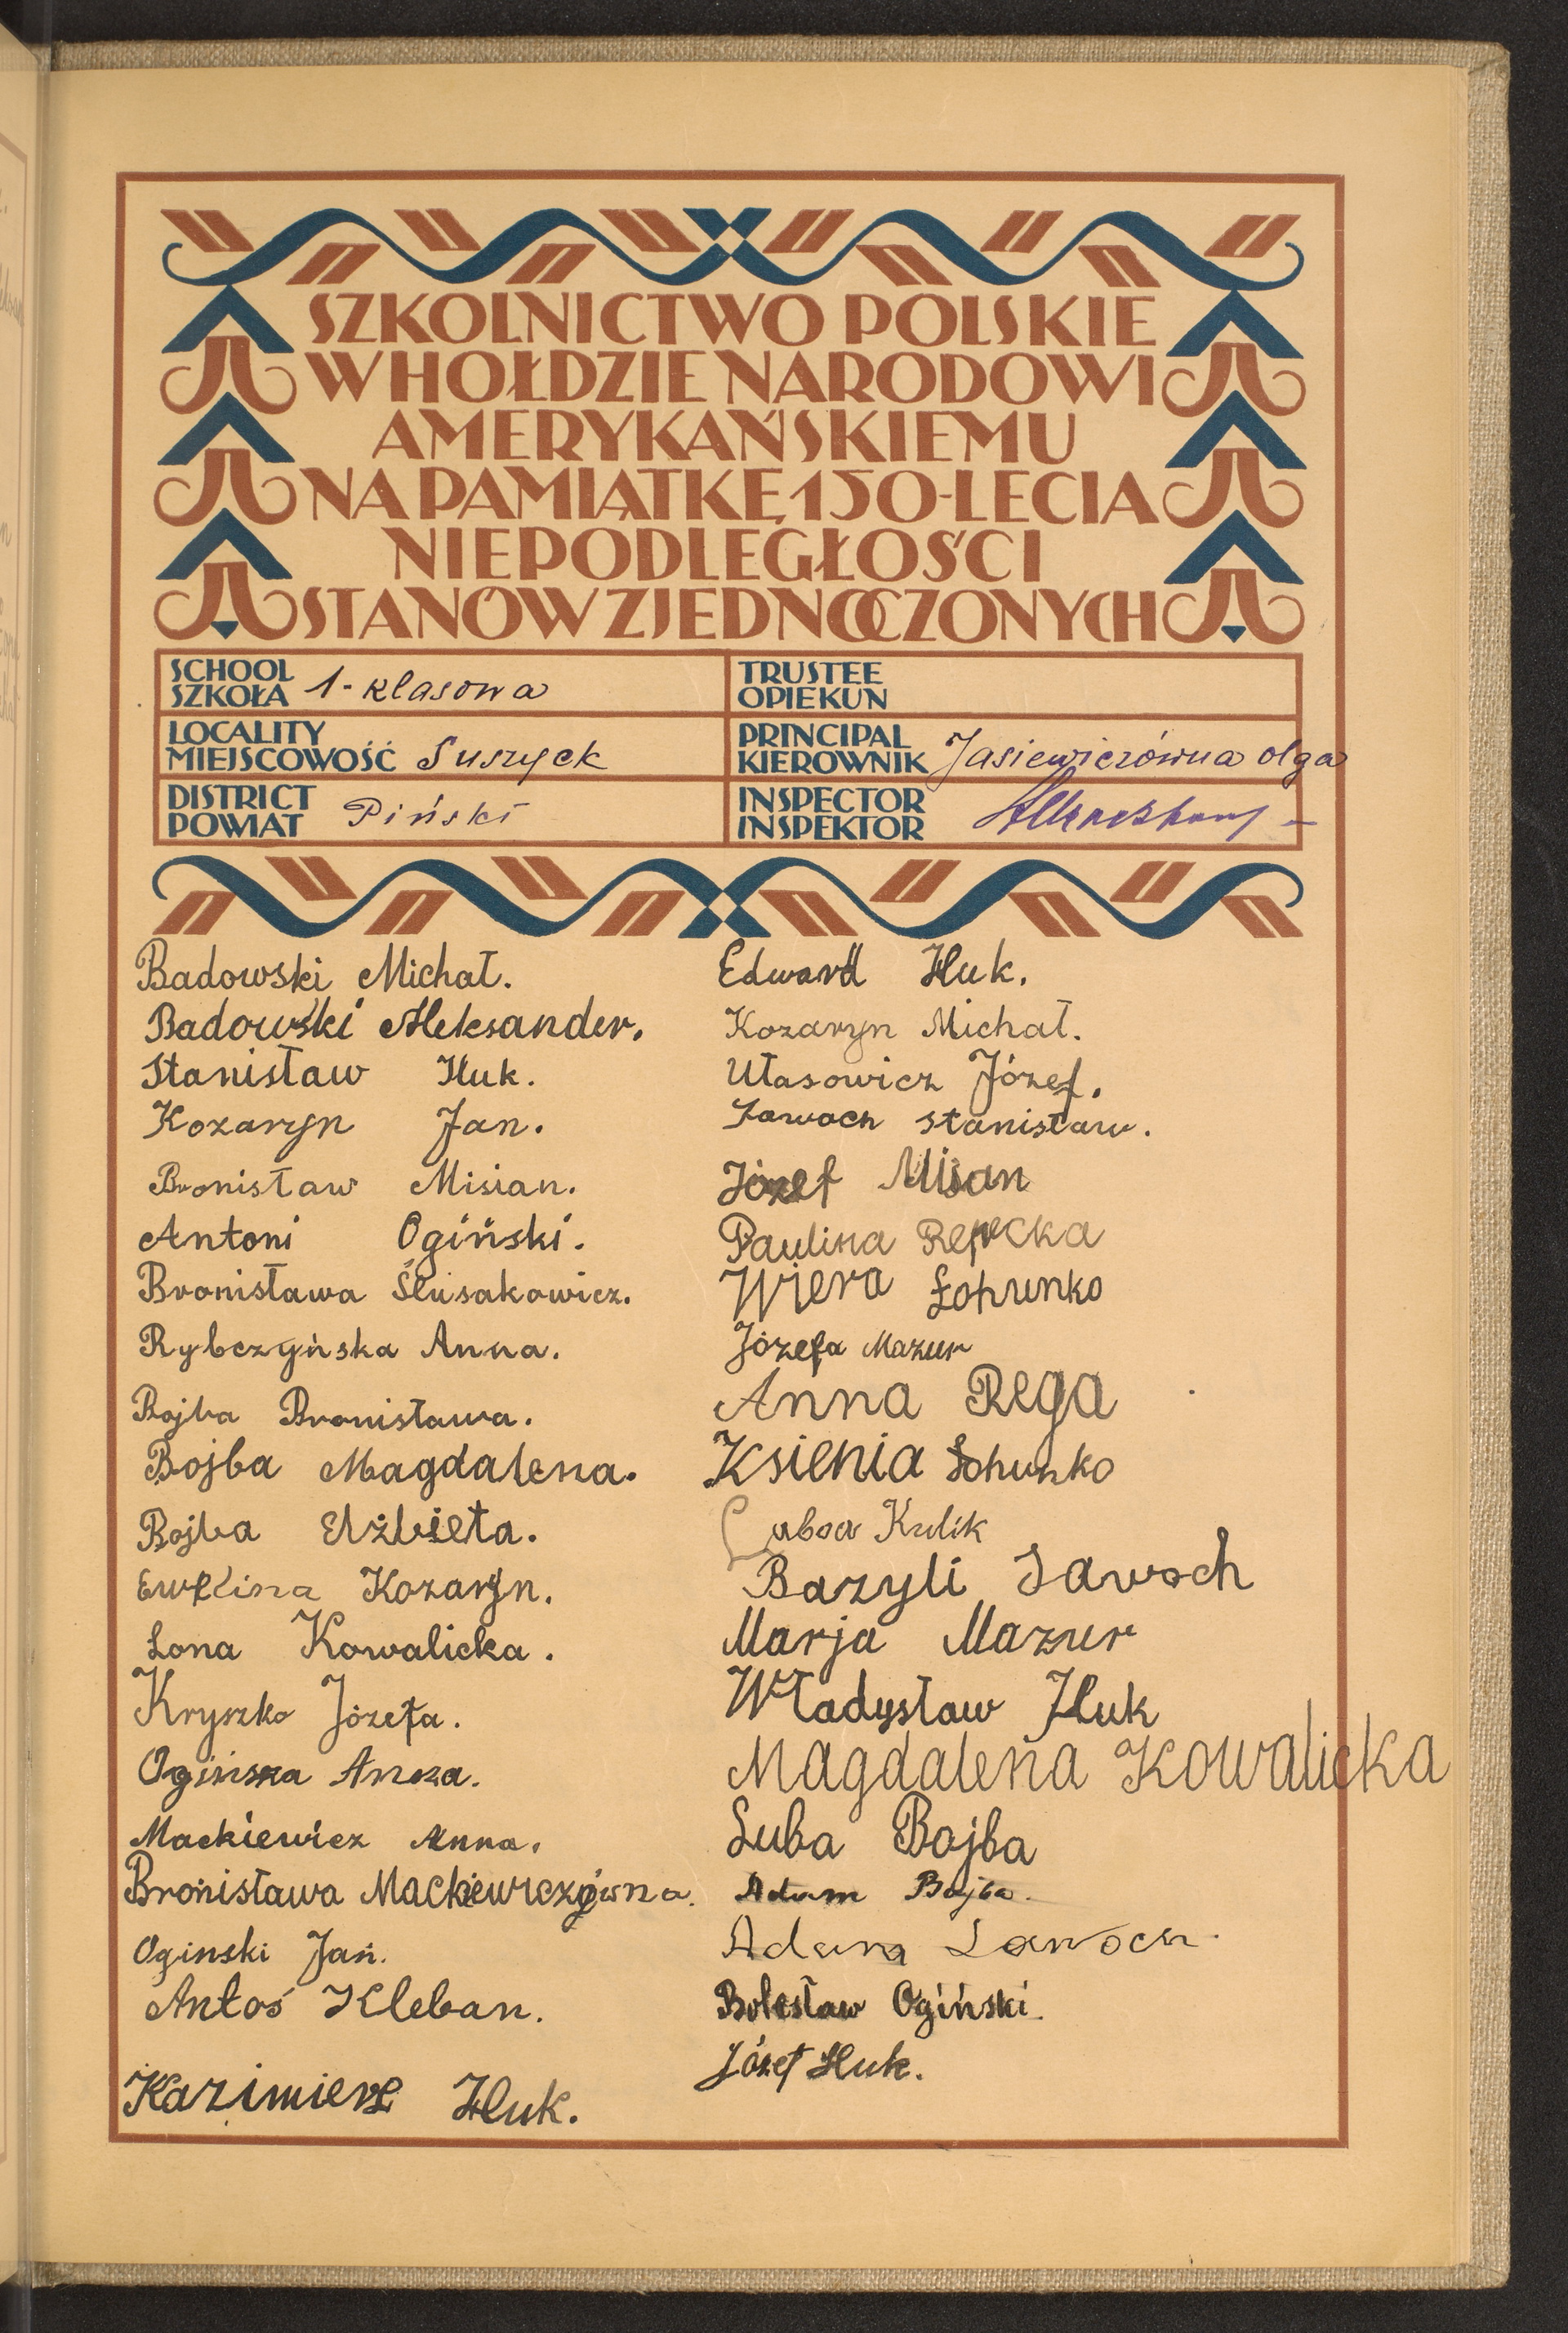 SZKOLNICTWO POLSKIE
W HOŁDZIE NARODOWI
AMERYKAŃSKIEMU
NA PAMIĄTKĘ 150-LECIA
NIEPODLEGŁOŚCI
STANÓW ZJEDNOCZONYCH
SCHOOL
SZKOŁA 1-klasowa
TRUSTEE
OPIEKUN
LOCALITY
MIEJSCOWOŚĆ Suszyck
PRINCIPAL
KIEROWNIK Jasiewiczówna Olga
DISTRICT
POWIAT Piński
INSPECTOR
INSPEKTOR
Badowski Michał.
Badowski Aleksander.
Stanisław Huk.
Kozaryn Jan.
Bronisław Misian.
Antoni Ogiński.
Bronisława Ślusakowicz.
Rybczyńska Anna.
Bojba Bronisława.
Bojba Magdalena.
Bojba Elżbieta.
Ewelina Kozaryn.
Łona Kowalicka.
Kryszko Józefa.
Ogińska Anna.
Mackiewicz Anna.
Bronisława Mackiewiczówna.
Oginski Jan.
Antoś Kleban.
Kazimierz Huk.
Edward Huk.
Kozaryn Michał.
Własowicz Józef.
Ławoch Stanisław.
Józef Misan
Paulina Repecka
Wiera Łohunko
Józefa Mazur
Anna Rega
Ksienia Łohunko
Luboa Kulik
Bazyli Ławoch
Marja Mazur
Władysław Huk
Magdalena Kowalicka
Luba Bojba
Adam Bojba.
Adam Ławoch.
Bolesław Ogiński.
Józef Huk.